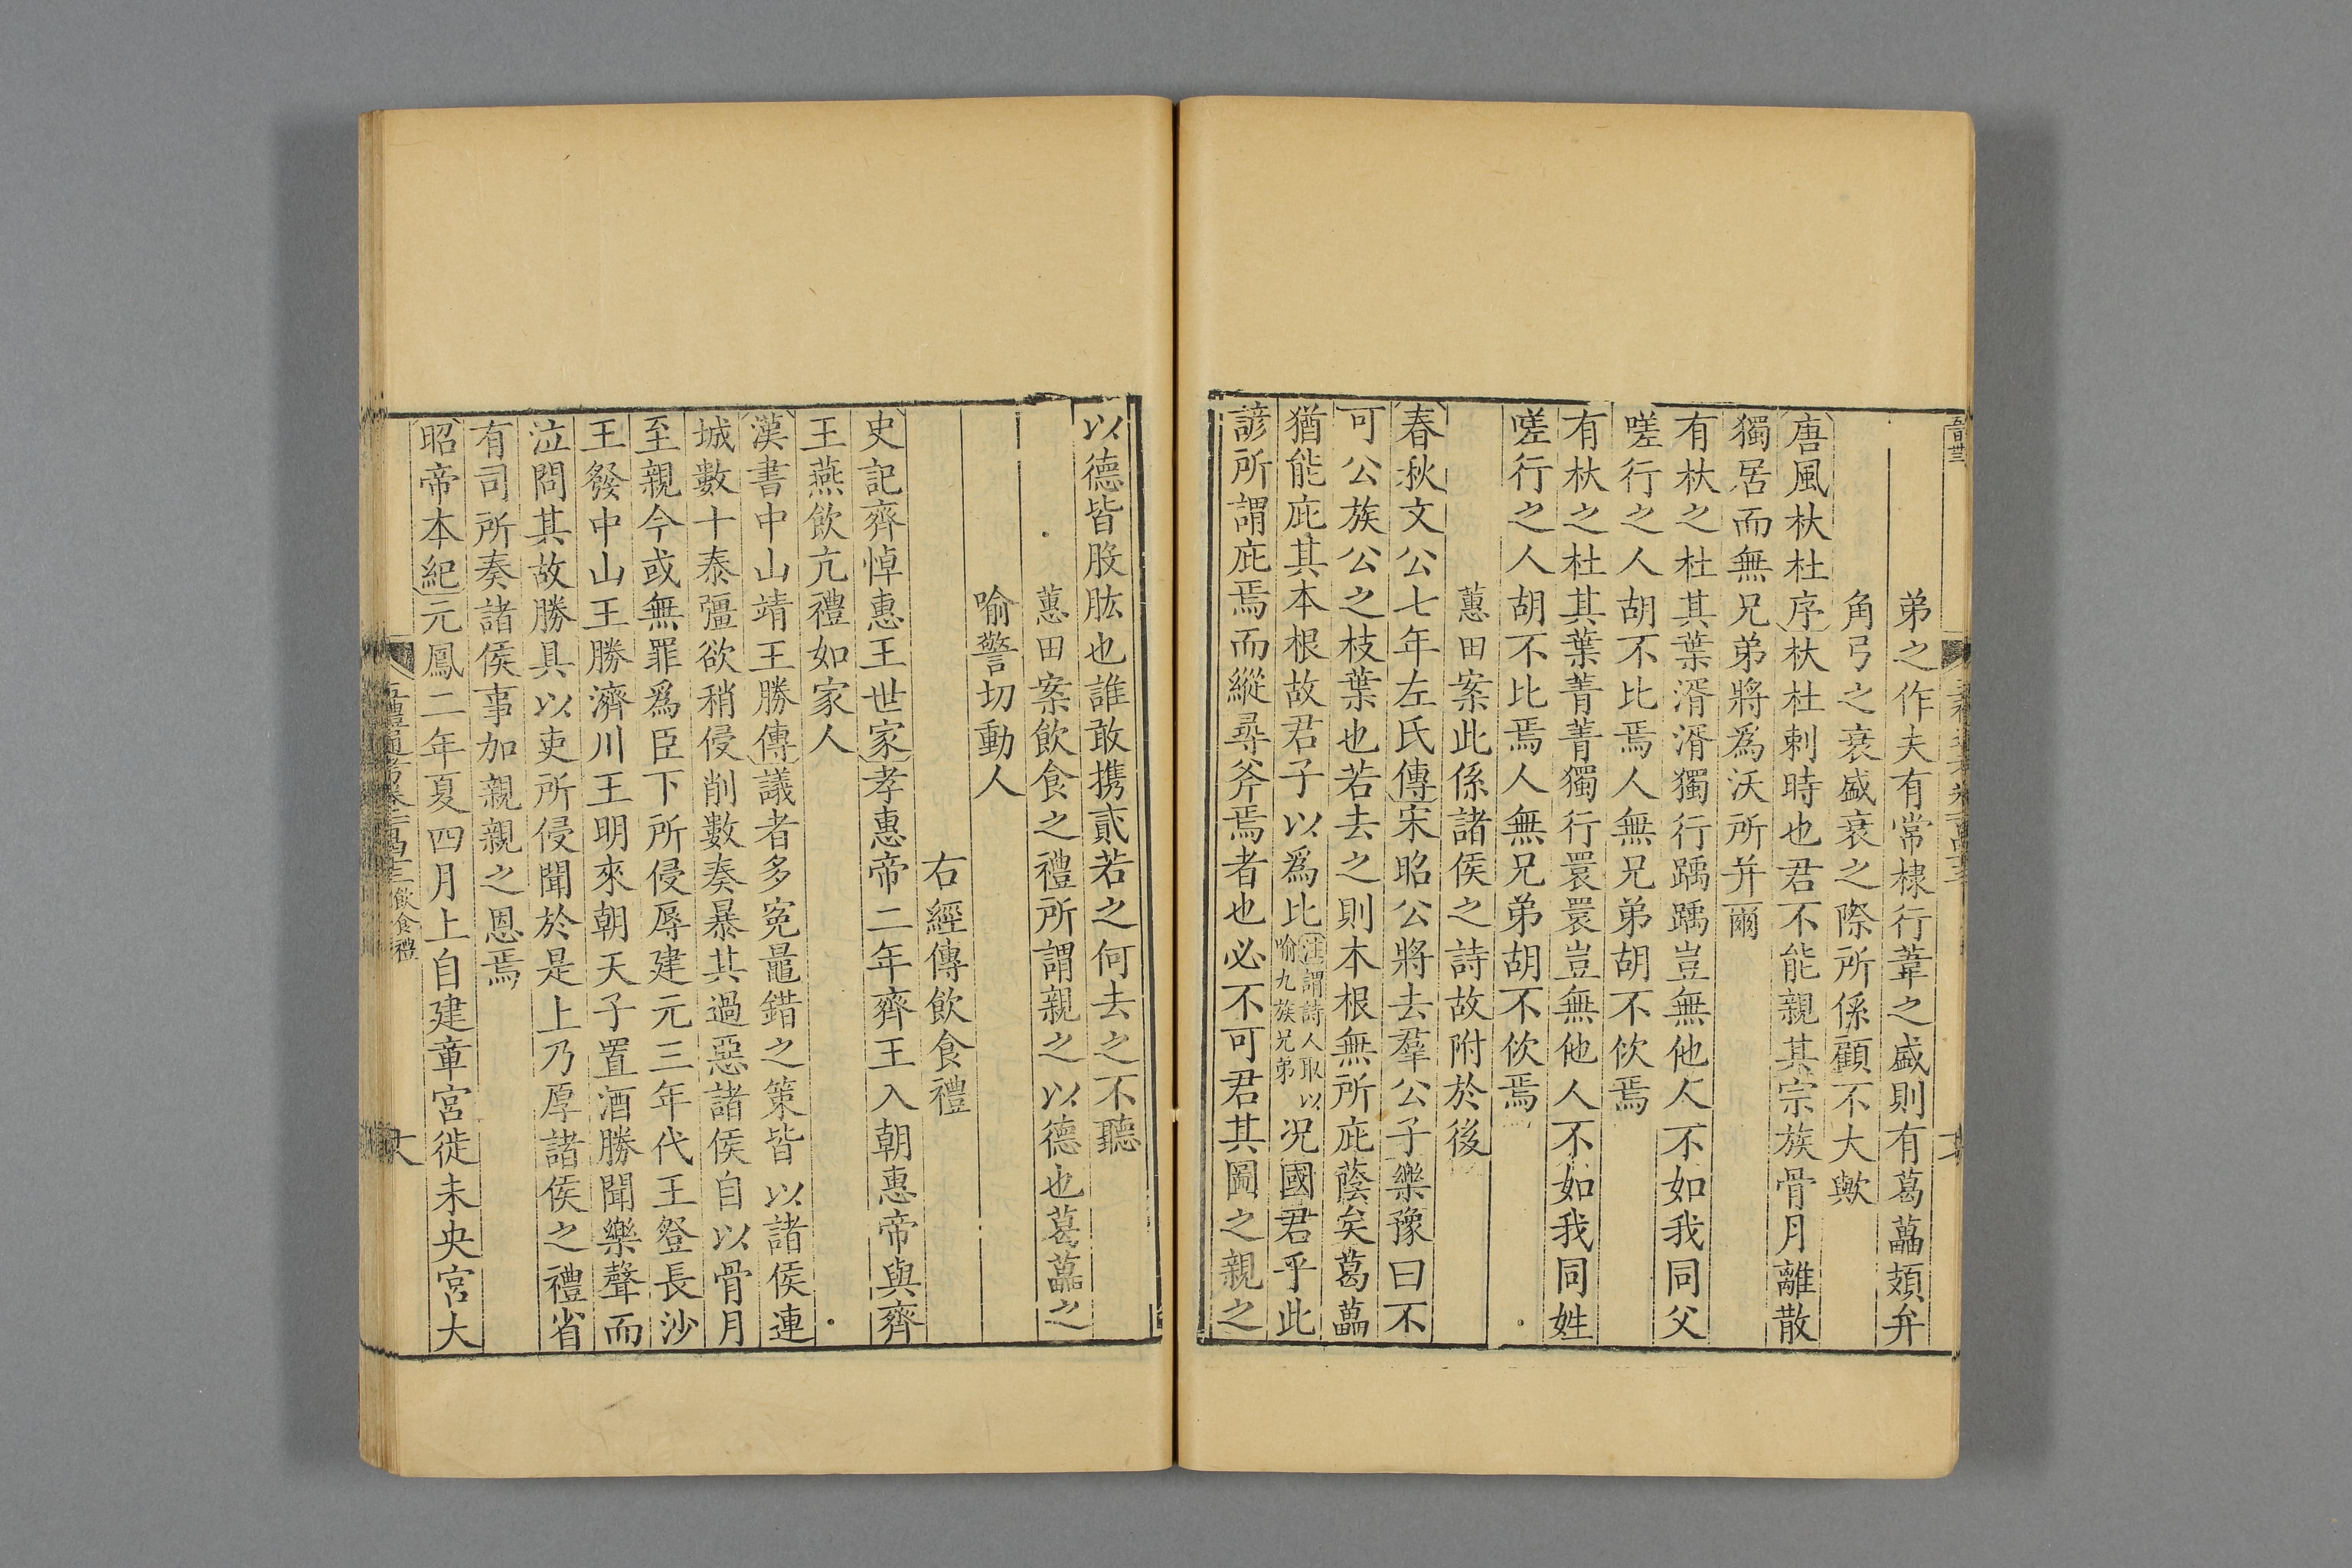 弟之作夫有常棣行葦之盛則有葛藟頍弁
角弓之衰盛衰之際所係顧不大歟
唐風杕杜序杕杜刺時也君不能親其宗族骨月離散
獨居而無兄弟將爲沃所并爾
有杕之杜其葉湑湑獨行踽踽豈無他人不如我同父
嗟行之人胡不比焉人無兄弟胡不佽焉
有杕之杜其葉菁菁獨行睘睘豈無他人不如我同姓
嗟行之人胡不比焉人無兄弟胡不佽焉
蕙田案此係諸侯之詩故附於後
春秋文公七年左氏傳宋昭公將去羣公子樂豫曰不
可公族公之枝葉也若去之則本根無所庇蔭矣葛藟
猶能庇其本根故君子以爲比注謂詩人取以喻九族兄弟况國君乎此
諺所謂庇焉而縱尋斧焉者也必不可君其圖之親之
以德皆股肱也誰敢携貳若之何去之不聽
蕙田案飲食之禮所謂親之以德也葛藟之
喻警切動人
右經傳飲食禮
史記齊悼惠王世家孝惠帝二年齊王入朝惠帝與齊
王燕飲亢禮如家人
漢書中山靖王勝傳議者多冤鼂錯之策皆以諸侯連
城數十泰彊欲稍侵削數奏暴其過惡諸侯自以骨月
至親今或無罪爲臣下所侵辱建元三年代王登長沙
王發中山王勝濟川王明來朝天子置酒勝聞樂聲而
泣問其故勝具以吏所侵聞於是上乃厚諸侯之禮省
有司所奏諸侯事加親親之恩焉
昭帝本紀元鳳二年夏四月上自建章宮徙未央宮大
飲食禮